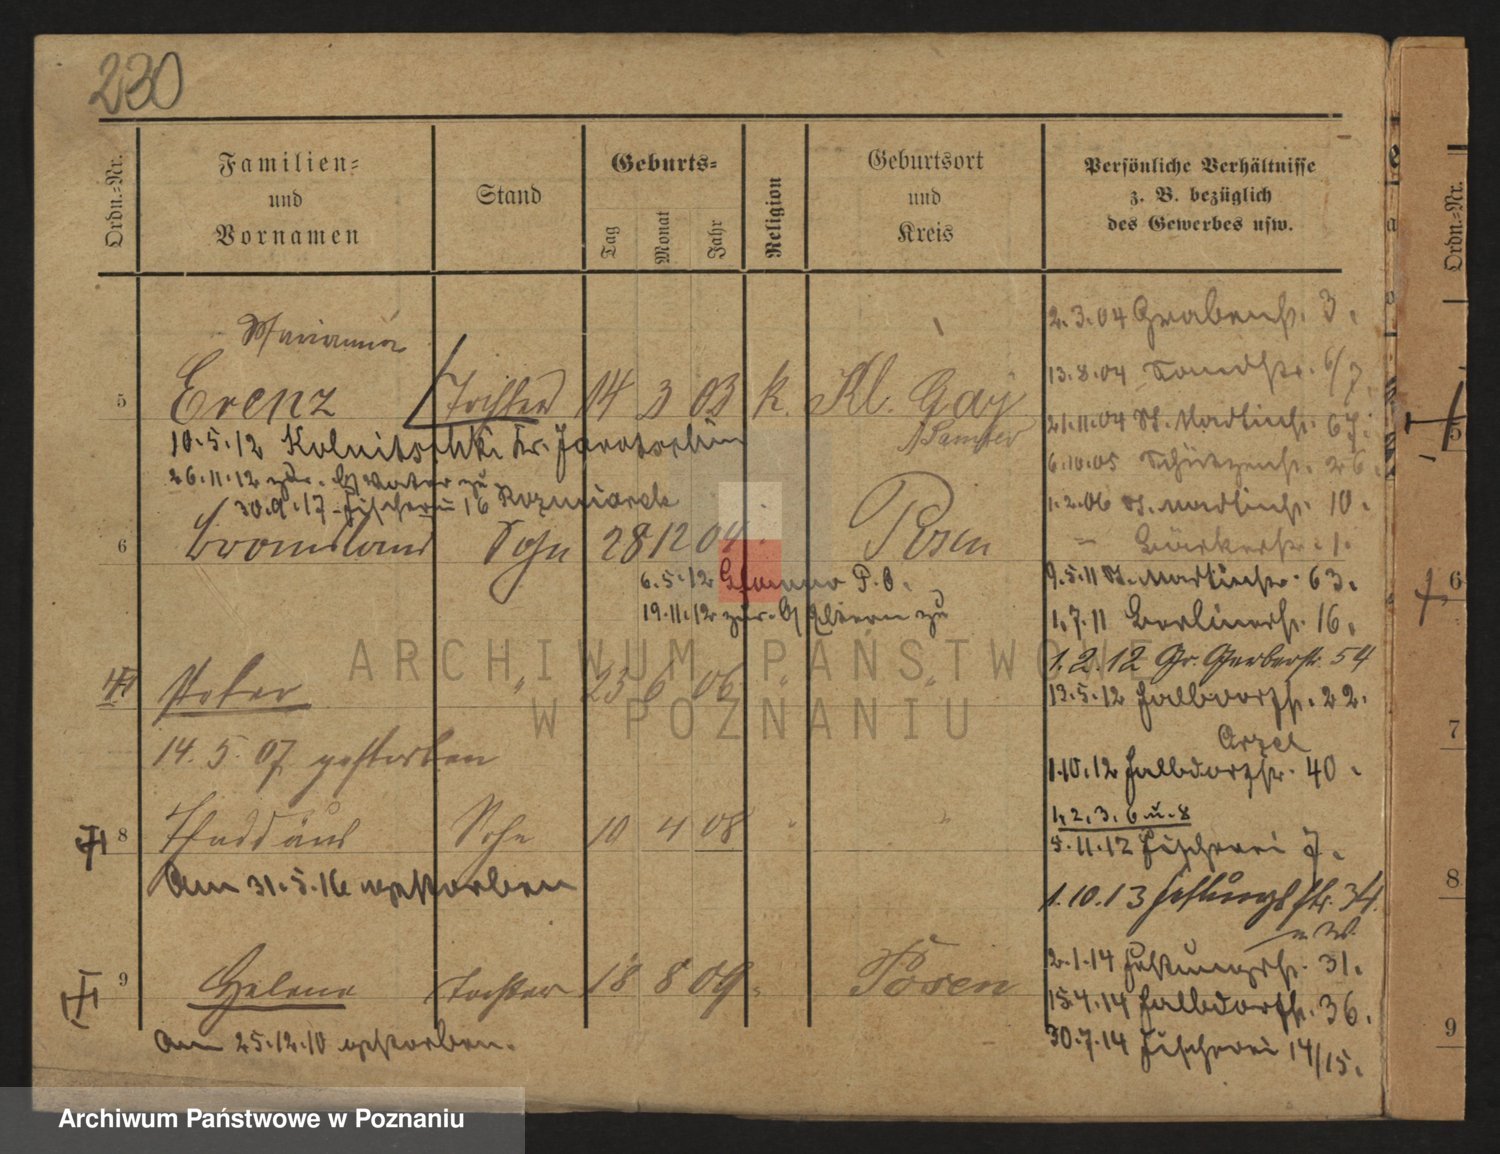 230
Ordn.-Nr.
Familien-
und
Vornamen
Stand
Geburts-
Tag
Monat
Jahr
Religion
Geburtsort
und
Kreis
Persönliche Verhältnisse
z. B. bezüglich
des Gewerbes usw.
Ordn.-Nr.
Marianna
5 Erenz Tochter 14 3 03 k. Kl. Gay
Samter
10.5.12 Kolnitschki Kr. Jarotschin
26.11.12 zur. Vater zu
30.9.17 Fischerei 16
6 Bronislaus Sohn 28 12 04 Posen
6.5.12 P. B.
19.11.12 zur. Eltern zu
Peter " 23 6 06 " "
14.5.07 gestorben
8 Thaddäus Sohn 10 4 08 " "
Am 31.5.16 gestorben
9 Helene Tochter 18 8 09 " Posen
Am 25.12.10 gestorben.
2.3.04 Grabenstr. 3.
13.8.04 6/7.
21.11.04 St. Martinstr. 67.
6.10.05 Schützenstr. 26.
1.2.06 St. Martinstr. 10.
– Bäckerstr. 1.
9.5.11 St. Martinstr. 63.
1.7.11 Berlinerstr. 16.
1.2.12 Gr. Gerberstr. 54
13.5.12 Halbdorfstr. 22.
1.10.12 Halbdorfstr. 40.
1, 2, 3, 6 u. 8
5.11.12 Fischerei 7.
1.10.13 Festungsstr. 34.
2.1.14 Festungsstr. 31.
15.4.14 Halbdorfstr. 36.
30.7.14 Fischerei 14/15.
5
6
7
8
9
ARCHIWUM PAŃSTWOWE
W POZNANIU
Archiwum Państwowe w Poznaniu